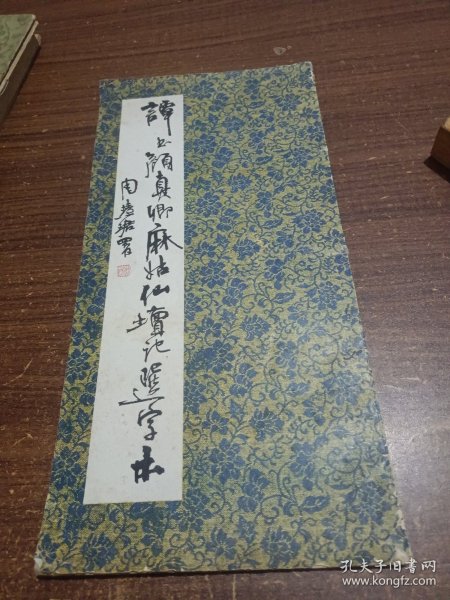 譚书顔真卿麻姑仙壇记選字本
周慧珺署
孔夫子旧书网
www.kongfz.com